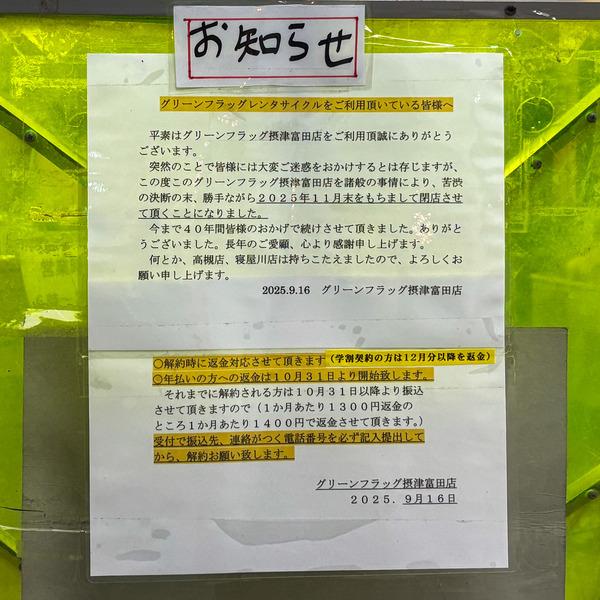 お知らせ
グリーンフラッグレンタサイクルをご利用頂いている皆様へ
平素はグリーンフラッグ摂津富田店をご利用頂誠にありがとう
ございます。
突然のことで皆様には大変ご迷惑をおかけするとは存じますが、
この度このグリーンフラッグ摂津富田店を諸般の事情により、苦渋
の決断の末、勝手ながら２０２５年１１月末をもちまして閉店させ
て頂くことになりました。
今まで４０年間皆様のおかげで続けさせて頂きました。ありがと
うございました。長年のご愛顧、心より感謝申し上げます。
何とか、高槻店、寝屋川店は持ちこたえましたので、よろしくお
願い申し上げます。
2025.9.16　グリーンフラッグ摂津富田店
○解約時に返金対応させて頂きます（学割契約の方は12月分以降を返金）
○年払いの方への返金は１０月３１日より開始致します。
それまでに解約される方は１０月３１日以降より振込
させて頂きますので（１か月あたり１３００円返金の
ところ１か月あたり１４００円で返金させて頂きます。）
受付で振込先、連絡がつく電話番号を必ず記入提出して
から、解約お願い致します。
グリーンフラッグ摂津富田店
２０２５．９月１６日